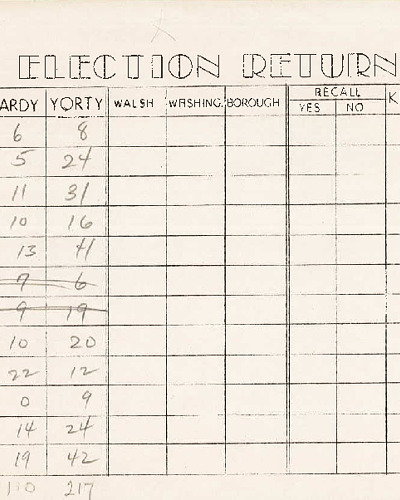 ELECTION RETURN
ARDY YORTY WALSH WASHING. BOROUGH RECALL K
YES NO
6 8
5 24
11 31
10 16
13
7 6
9 19
10 20
22 12
0 9
14 24
19 42
110 217